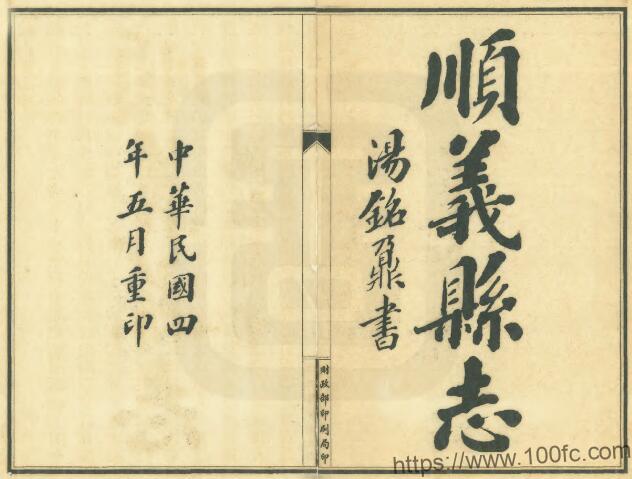 順義縣志
湯銘鼐書
財政部印刷局印
中華民國四
年五月重印
https://www.100fc.com